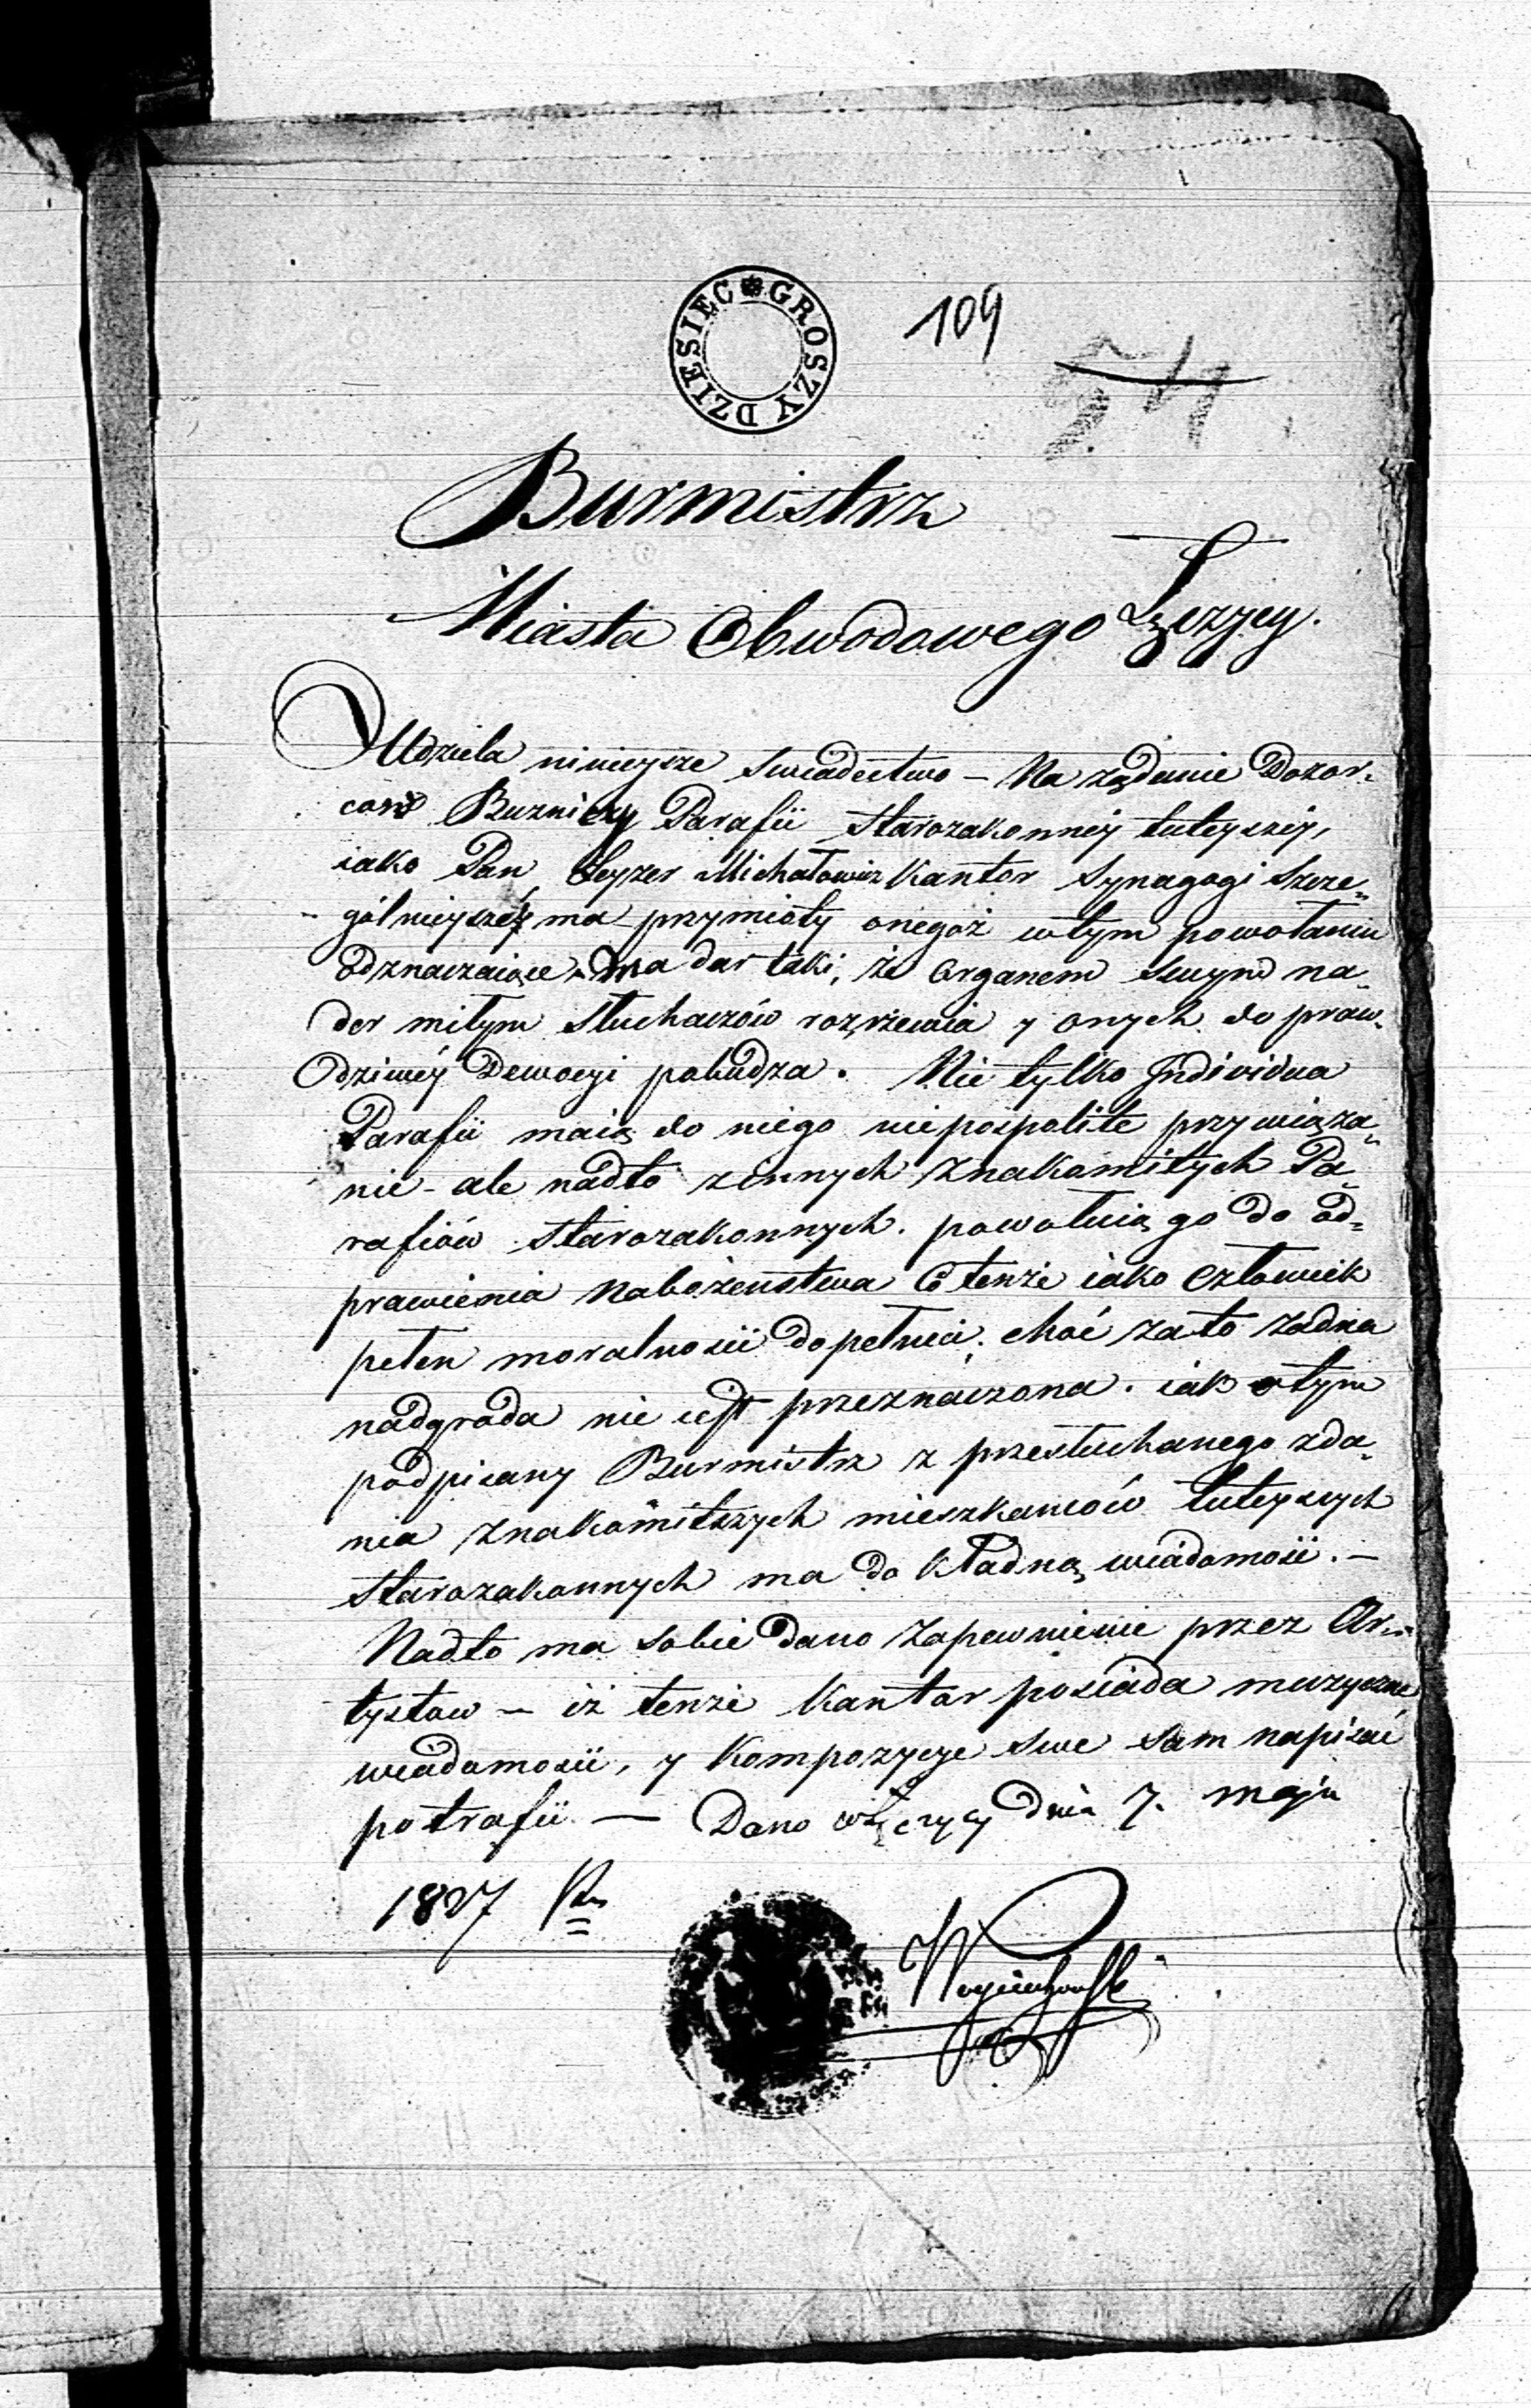 DZIESIĘC GROSZY
109
54
Burmistrz
Miasta Obwodowego Łęczycy.
Udziela ninieysze swiadectwo – Na żądanie Dozor-
ców Buznicy Parafii Starozakonney tuteyszéy,
iako Pan Leyzer Michałowicz Kantor Synagogi Szcze=
gólnieyszéy ma przymioty onegoż w tym powołaniu
odznaczaiące, ma dar taki, że Organem swym na=
der miłym Słuchaczów rozrzewnia y onych do praw-
dziwéy Dewocyi pobudza. Nie tylko Individua
Parafii maią do niego niepospolite przywiąza=
nie – ale nadto z innych znakomitych Pa=
rafiów Starozakonnych powołuią go do od=
prawienia Nabożeństwa Co tenże iako człowiek
pełen moralności dopełnia, choć za to żadna
nadgroda nie iest przeznaczona. iak o tym
podpisany Burmistrz z przesłuchanego zda=
nia znakomitszych mieszkańców tuteyszych
Starozakonnych ma dokładną wiadomość. –
Nadto ma sobie dano zapewnienie przez Ar=
tystow – iż tenże Kantor posiada muzyczne
wiadomości, y Kompozycye swe sam napisać
potrafii. — Dano w Łęczycy dnia 7. maja
1827 Rn
Woyciechowski